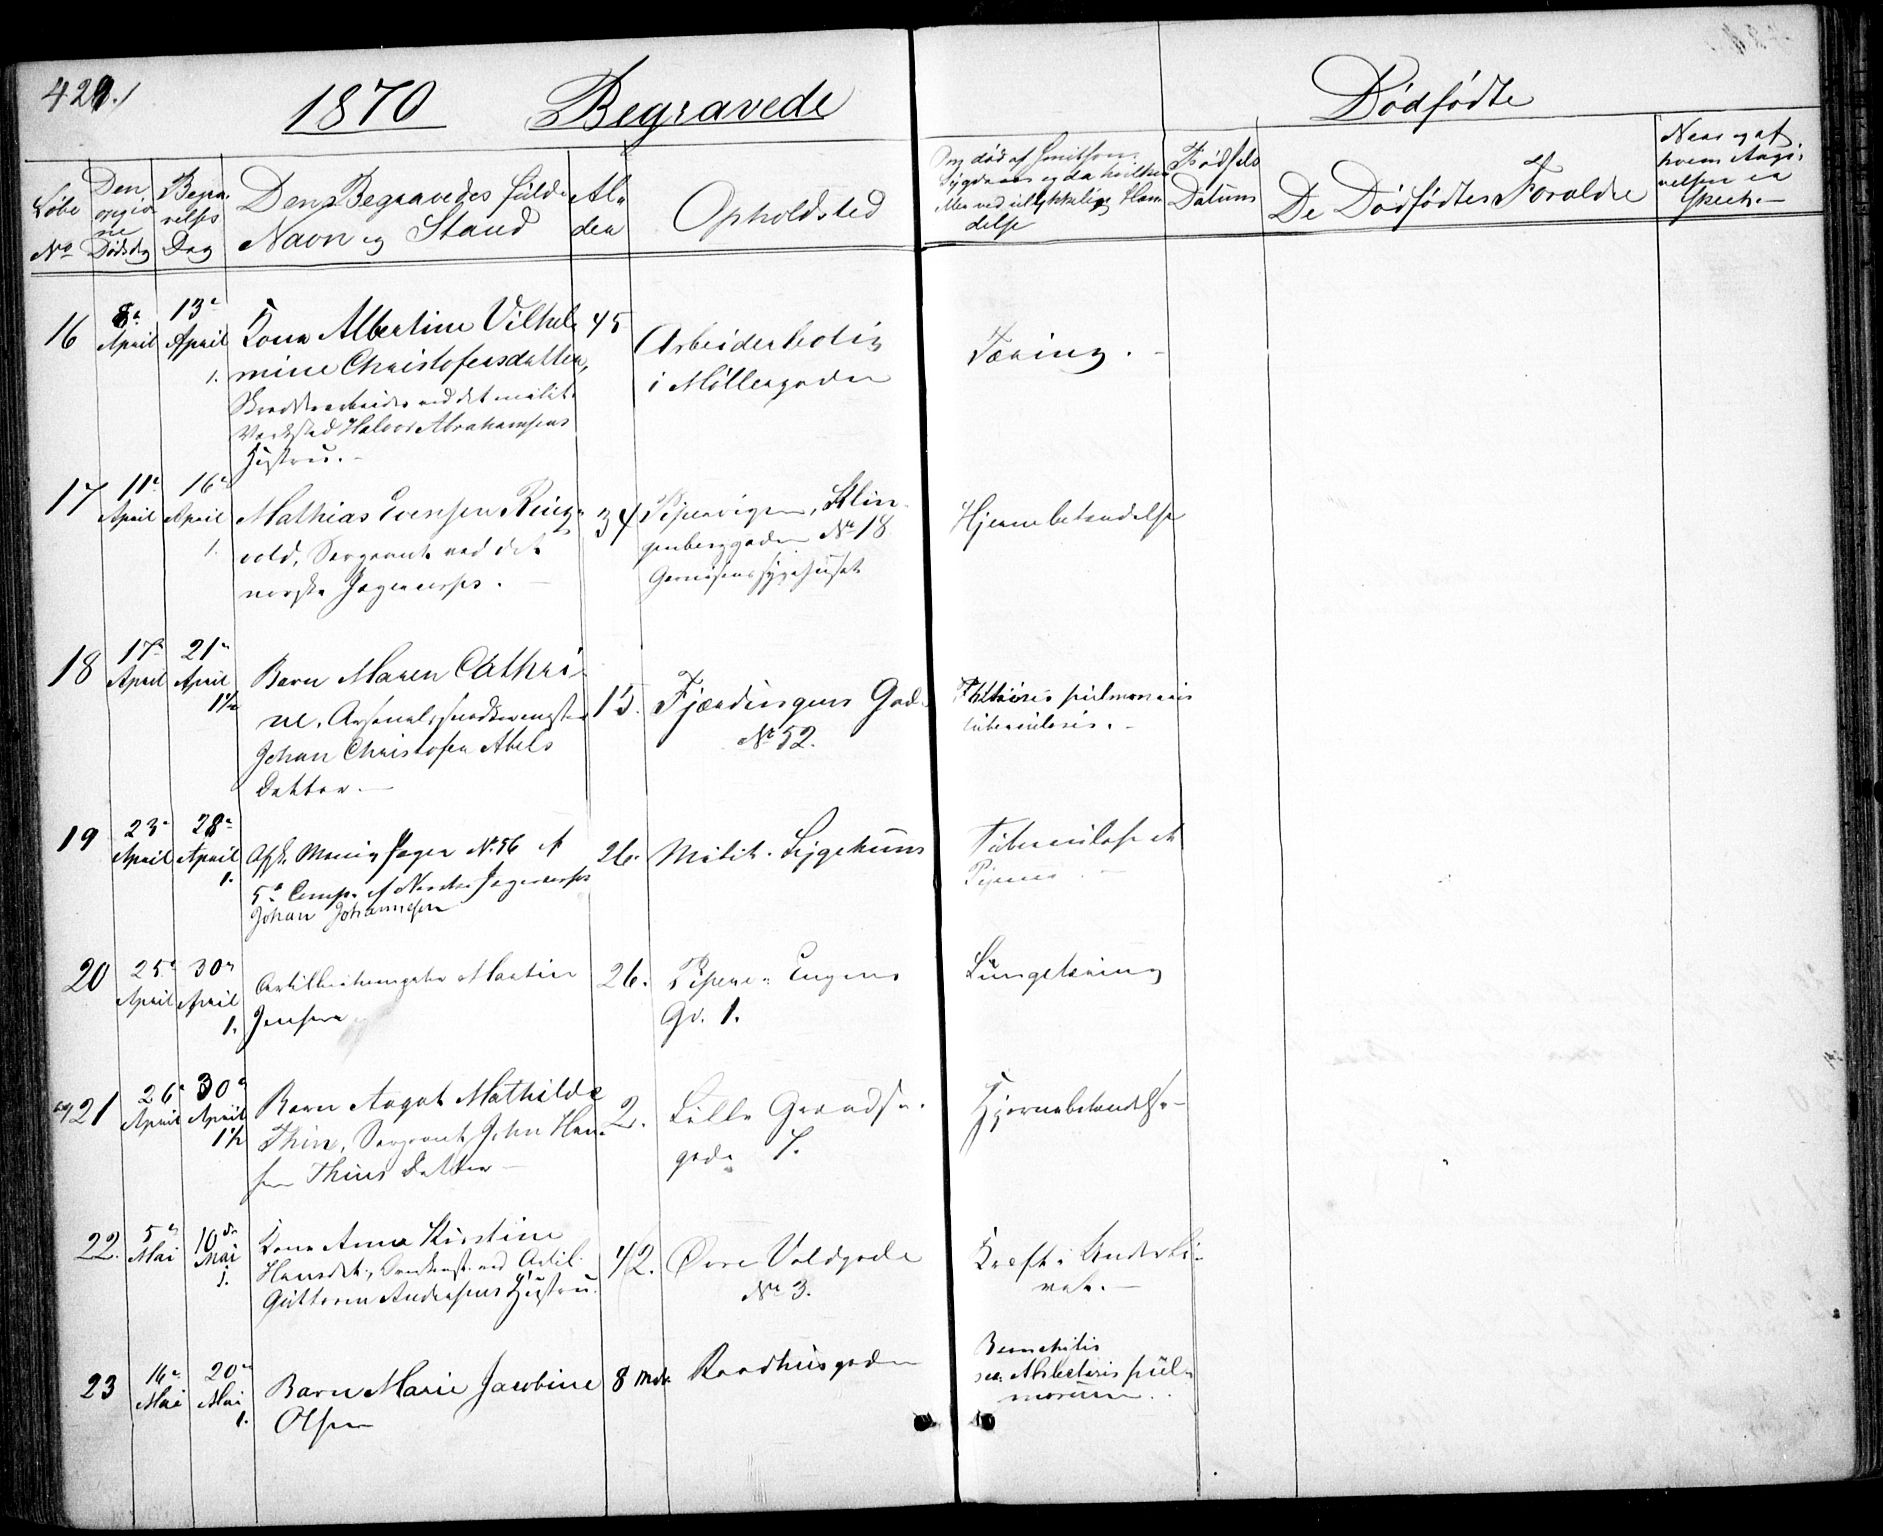 429.
1870 Begravede
Dødfødte
Løbe No
Den angivne Dødsdag
Begravelses Dag
Den Begravedes fulde Navn og Stand
Alder
Opholdsted
Om død af smitsom
Sygdom og da hvilken
eller ved ulykkelig Hæn
delse
Fødsels Datum
De Dødfødtes Forældre
Naar og af
hvem Angi-
velsen er
skeet.
16
8de April
13de April
1.
Kone Albertine Vilhel-
mine Christofersdatter,
ved det milit.
Værksted Halvor Abrahamsens
Hustru. -
45
Arbeiderbolig
i Møllergaden
Tæring. -
17
11te April
16de April
1.
Mathias Evensen Ring-
vold, Sergeant ved det
norske Jægercorps. -
34
Pipervigen, Klin-
genberggaden No 18
Garnisonssygehuset
Hjernebetændelse
18
17de April
21de April
1 1/2
Barn Maren Cathri-
ne, Arsenals
Johan Christofer Abels
Datter. -
15.
Fjerdingens Gade
No 52.
Phthisis pulmonaris
tuberculosis. -
19
23de April
28de April
1.
Afsk. Menig Jæger No 56 af
5te Comp. af Norske Jægercorps
Johan Johannesen
26.
Milit. Sygehuus
Tuberculose
20
25de April
30de April
1.
Martin
Jensen
26.
Eugens
Gd. 1.
Lungetæring
21
26de April
30de April
1 1/2
Barn Aagot Mathilde
Thiis, Sergeant John Han-
sen Thiis Datter -
2.
Lille Grændse-
gade 7.
Hjernebetændelse -
22.
5te Mai
10de Mai
1.
Kone Anne Kirstine
Hansdt., ved Artil.
Guttorm Andersens Hustru.
42.
Øvre Voldgade
No 3.
Kræft i Underli-
vet. -
23
14de Mai
20de Mai
1.
Barn Marie Jacobine
Olsen
8 Mdr.
Raadhusgaden
Bronchitis
pul-
monum.